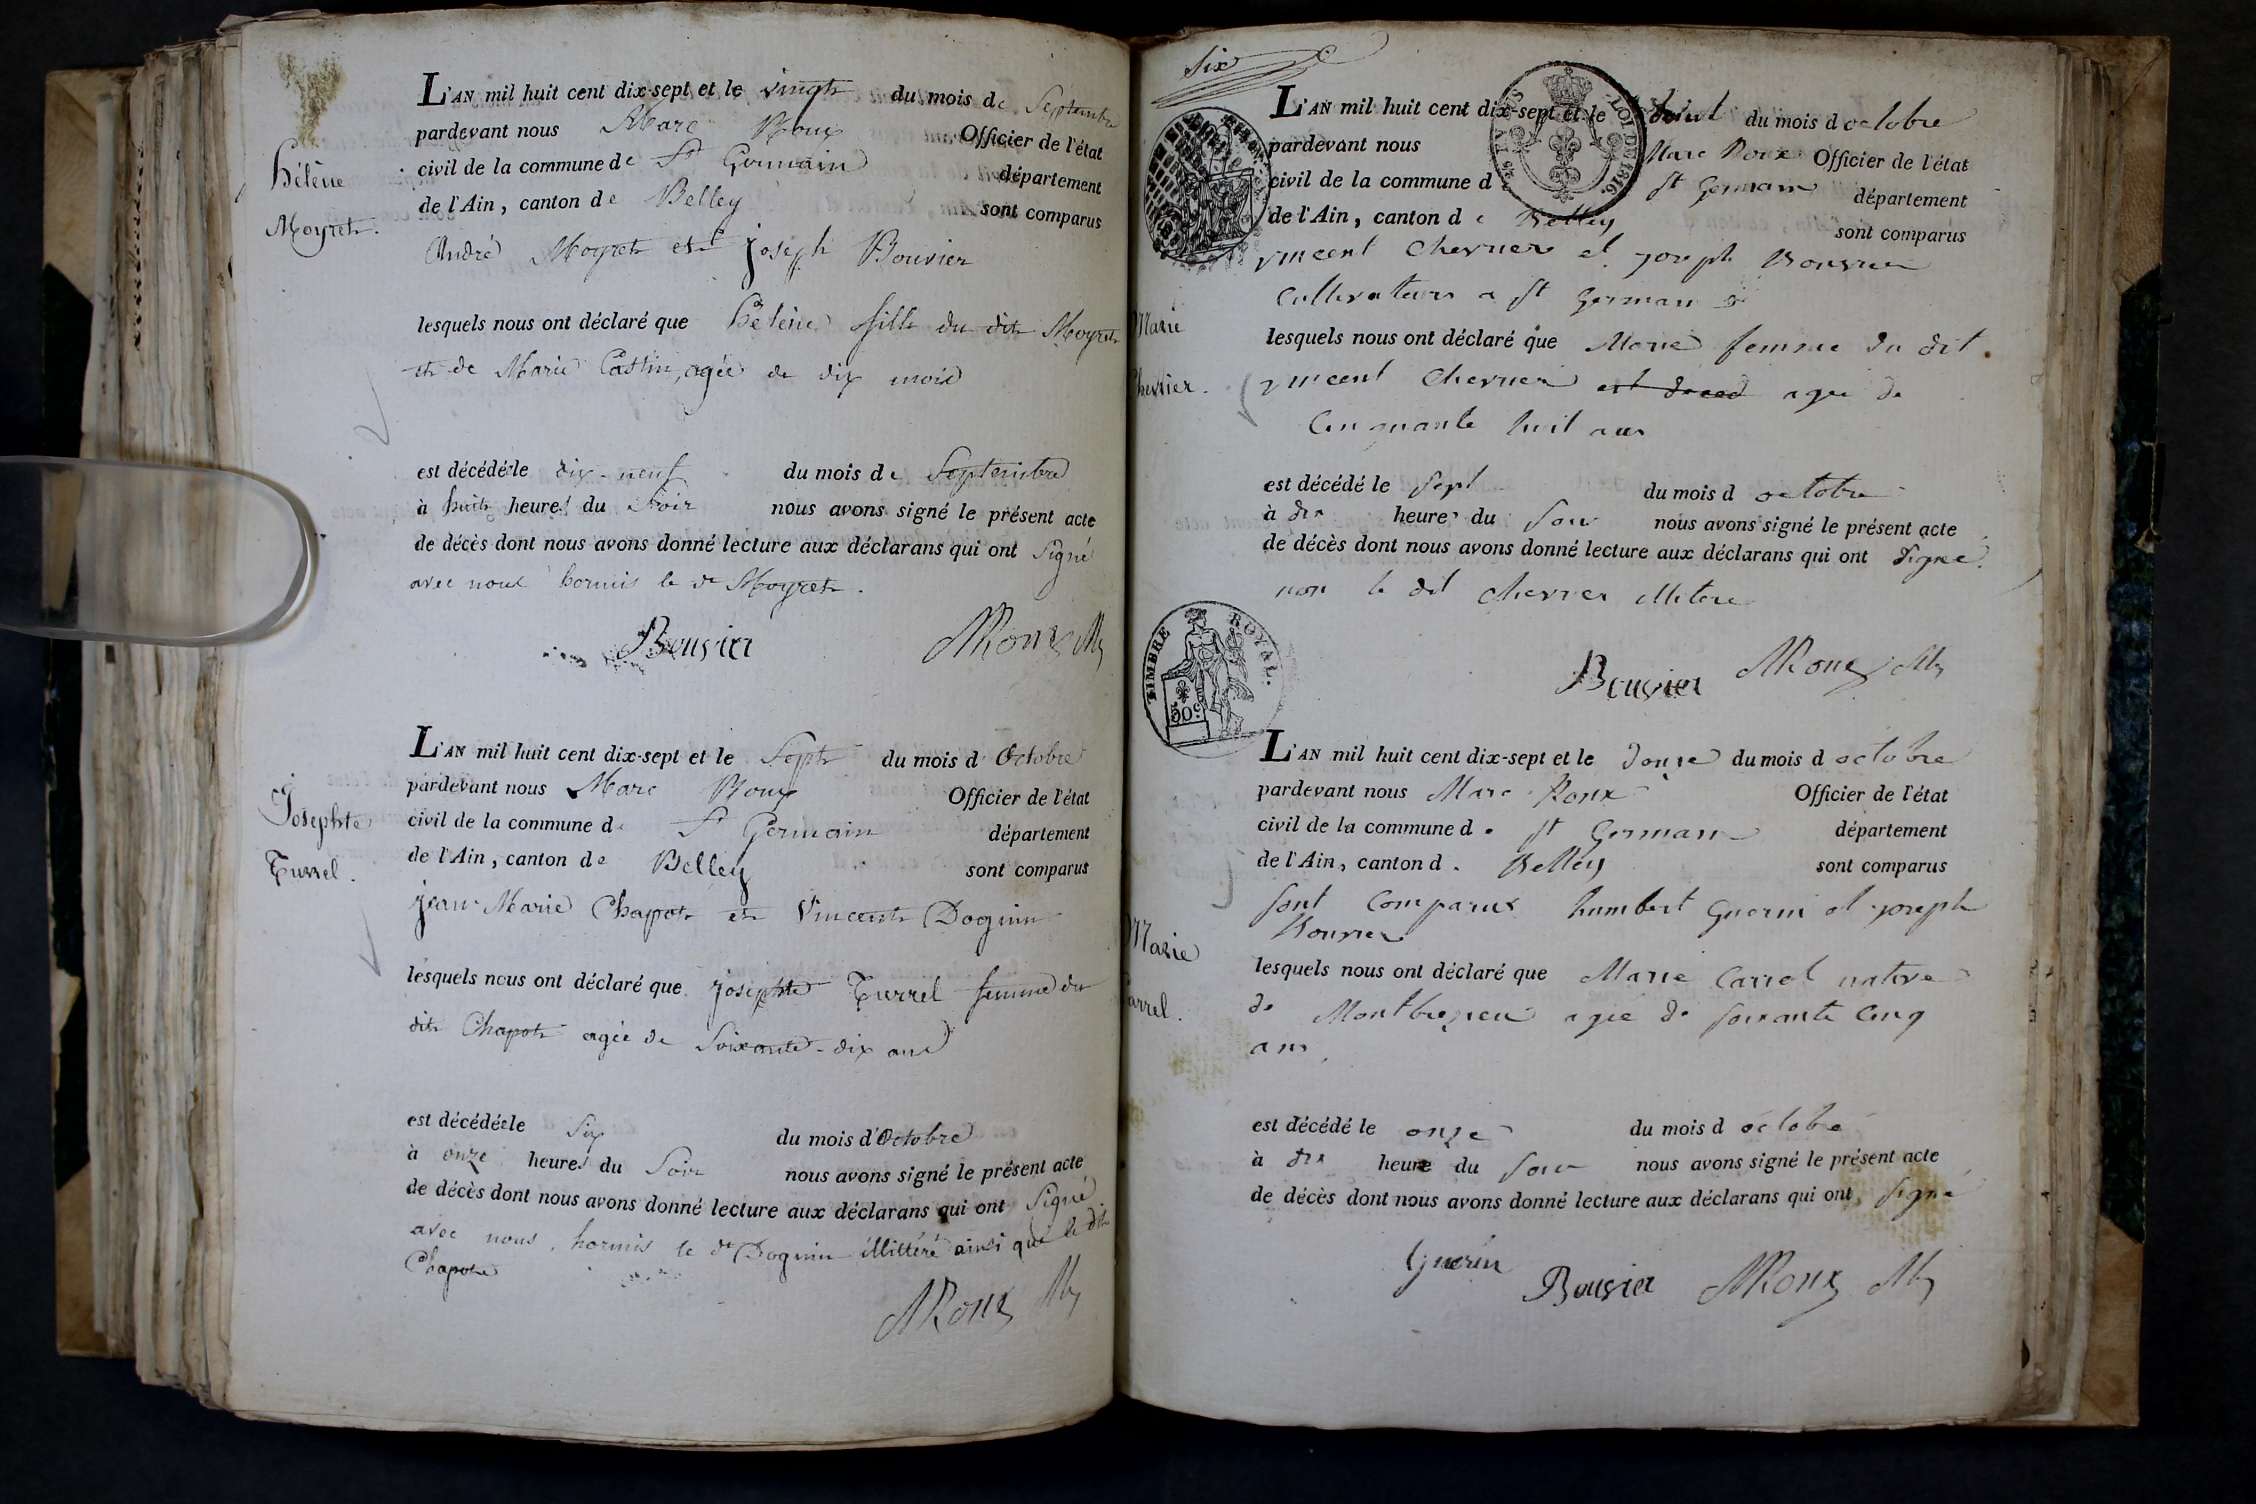 Hélène
Moyret.
L'AN mil huit cent dix-sept et le vingt du mois de Septembre
pardevant nous Marc Roux Officier de l'état
civil de la commune de St Germain département
de l'Ain, canton de Belley sont comparus
André Moyret et joseph Bouvier
lesquels nous ont déclaré que hélène fille du dit Moyret
et de Marie Castin, agée de dix mois
est décédée le dix-neuf du mois de Septembre
à huit heures du Soir nous avons signé le présent acte
de décès dont nous avons donné lecture aux déclarans qui ont Signé
avec nous hormis le dt Moyret.
Bouvier MRoux
Josephte
Turrel.
L'AN mil huit cent dix-sept et le Sept du mois d'Octobre
pardevant nous Marc Roux Officier de l'état
civil de la commune de St Germain département
de l'Ain, canton de Belley sont comparus
jean-Marie Chapot et Vincent Dognin
lesquels nous ont déclaré que josephte Turrel femme du
dit Chapot agée de Soixante-dix ans
est décédée le Six du mois d'Octobre
à onze heures du Soir nous avons signé le présent acte
de décès dont nous avons donné lecture aux déclarans qui ont Signé
avec nous, hormis le dt Dognin illittéré ainsi que le dit
Chapot
MRoux
Six
LOI DE 1816.
Marie
Chevrier.
L'AN mil huit cent dix-sept et le du mois d octobre
pardevant nous Marc Roux Officier de l'état
civil de la commune d St Germain département
de l'Ain, canton de Belley sont comparus
vincent Chevrier et joseph Bouvier
Cultivateurs a St Germain
lesquels nous ont déclaré que Marie femme du dit
vincent Chevrier est deced agee de
Cinquante huit ans
est décédé le Sept du mois d octobre
à dix heures du Soir nous avons signé le présent acte
de décès dont nous avons donné lecture aux déclarans qui ont signé
non le dit Chevrier illitere
Bouvier MRoux
TIMBRE ROYAL.
50c
Marie
Carrel.
L'AN mil huit cent dix-sept et le douze du mois d octobre
pardevant nous Marc Roux Officier de l'état
civil de la commune de St Germain département
de l'Ain, canton de Belley sont comparus
sont Comparus humbert Guerin et joseph
Bouvier
lesquels nous ont déclaré que Marie Carrel native
de agee de soixante Cinq
ans
est décédé le onze du mois d octobre
à dix heure du Soir nous avons signé le présent acte
de décès dont nous avons donné lecture aux déclarans qui ont signé
Guerin Bouvier MRoux